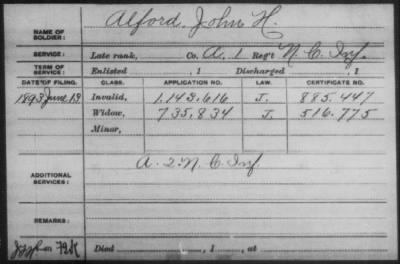 NAME OF SOLDIER: Alford, John H.
SERVICE: Late rank, Co. A, 1 Reg't N.C. Inf.
TERM OF SERVICE: Enlisted , 1 Discharged , 1
DATE OF FILING. CLASS. APPLICATION NO. LAW. CERTIFICATE NO.
1893 June 13 Invalid, 1,143,616 J. 885.447
Widow, 735,834 J. 516.775
Minor,
ADDITIONAL SERVICES: A. 2 N.C. Inf
REMARKS:
Died , 1 , at